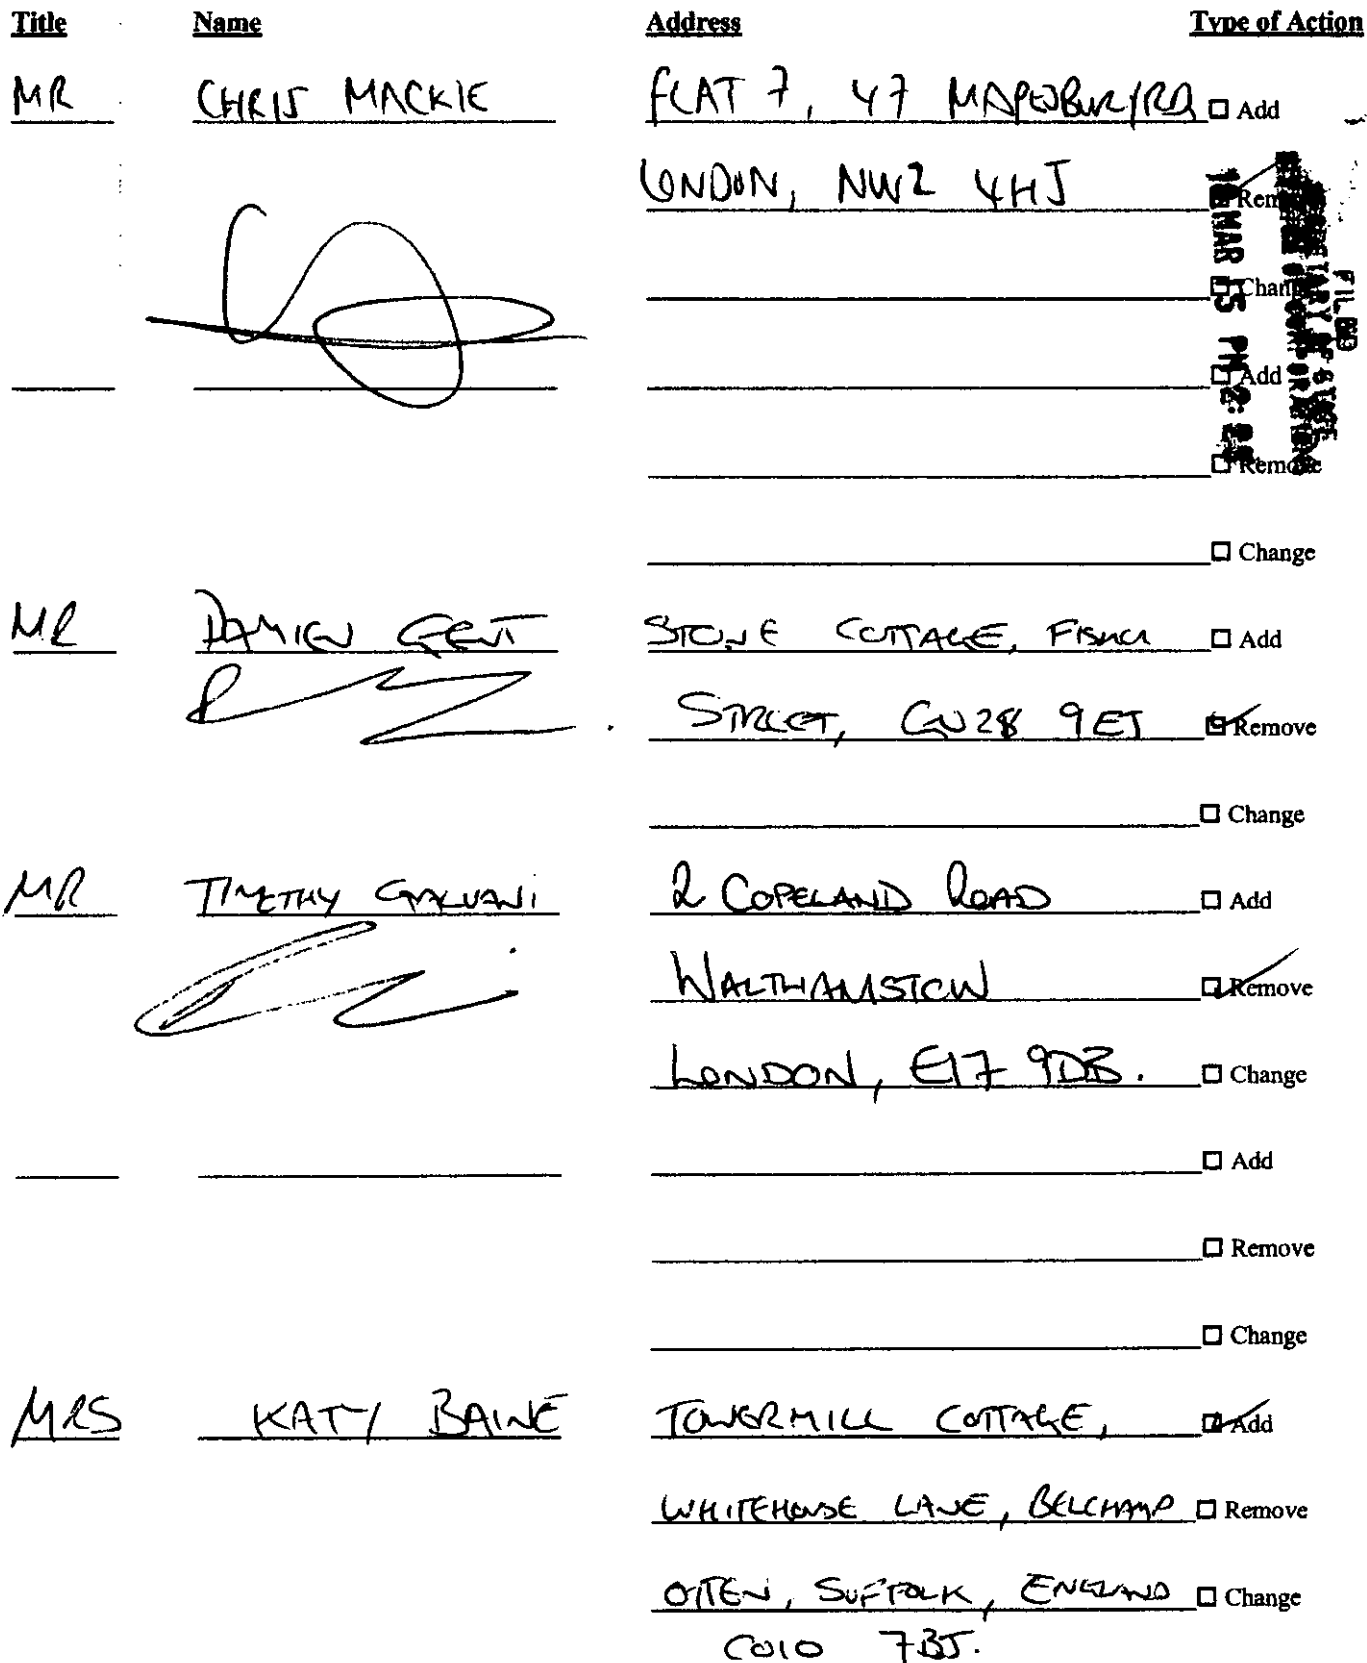 Title Name Address Type of Action
MR CHRIS MACKIE FLAT 7, 47 MAPESBURY RD ☐ Add
LONDON, NW2 4HJ
☐ Add
☐ Remove
☐ Change
MR DAMIEN GENT STONE COTTAGE, FISHER ☐ Add
STREET, GU28 9EJ ☑ Remove
☐ Change
MR TIMOTHY GALVANI 2 COPELAND ROAD ☐ Add
WALTHAMSTOW ☑ Remove
LONDON, E17 9DB. ☐ Change
☐ Add
☐ Remove
☐ Change
MRS KATY BAINE TOWERMILL COTTAGE, ☑ Add
WHITEHOUSE LANE, BELCHAMP ☐ Remove
OTTEN, SUFFOLK, ENGLAND ☐ Change
CO10 7BJ.
FILED
MAR 15 PM 2: